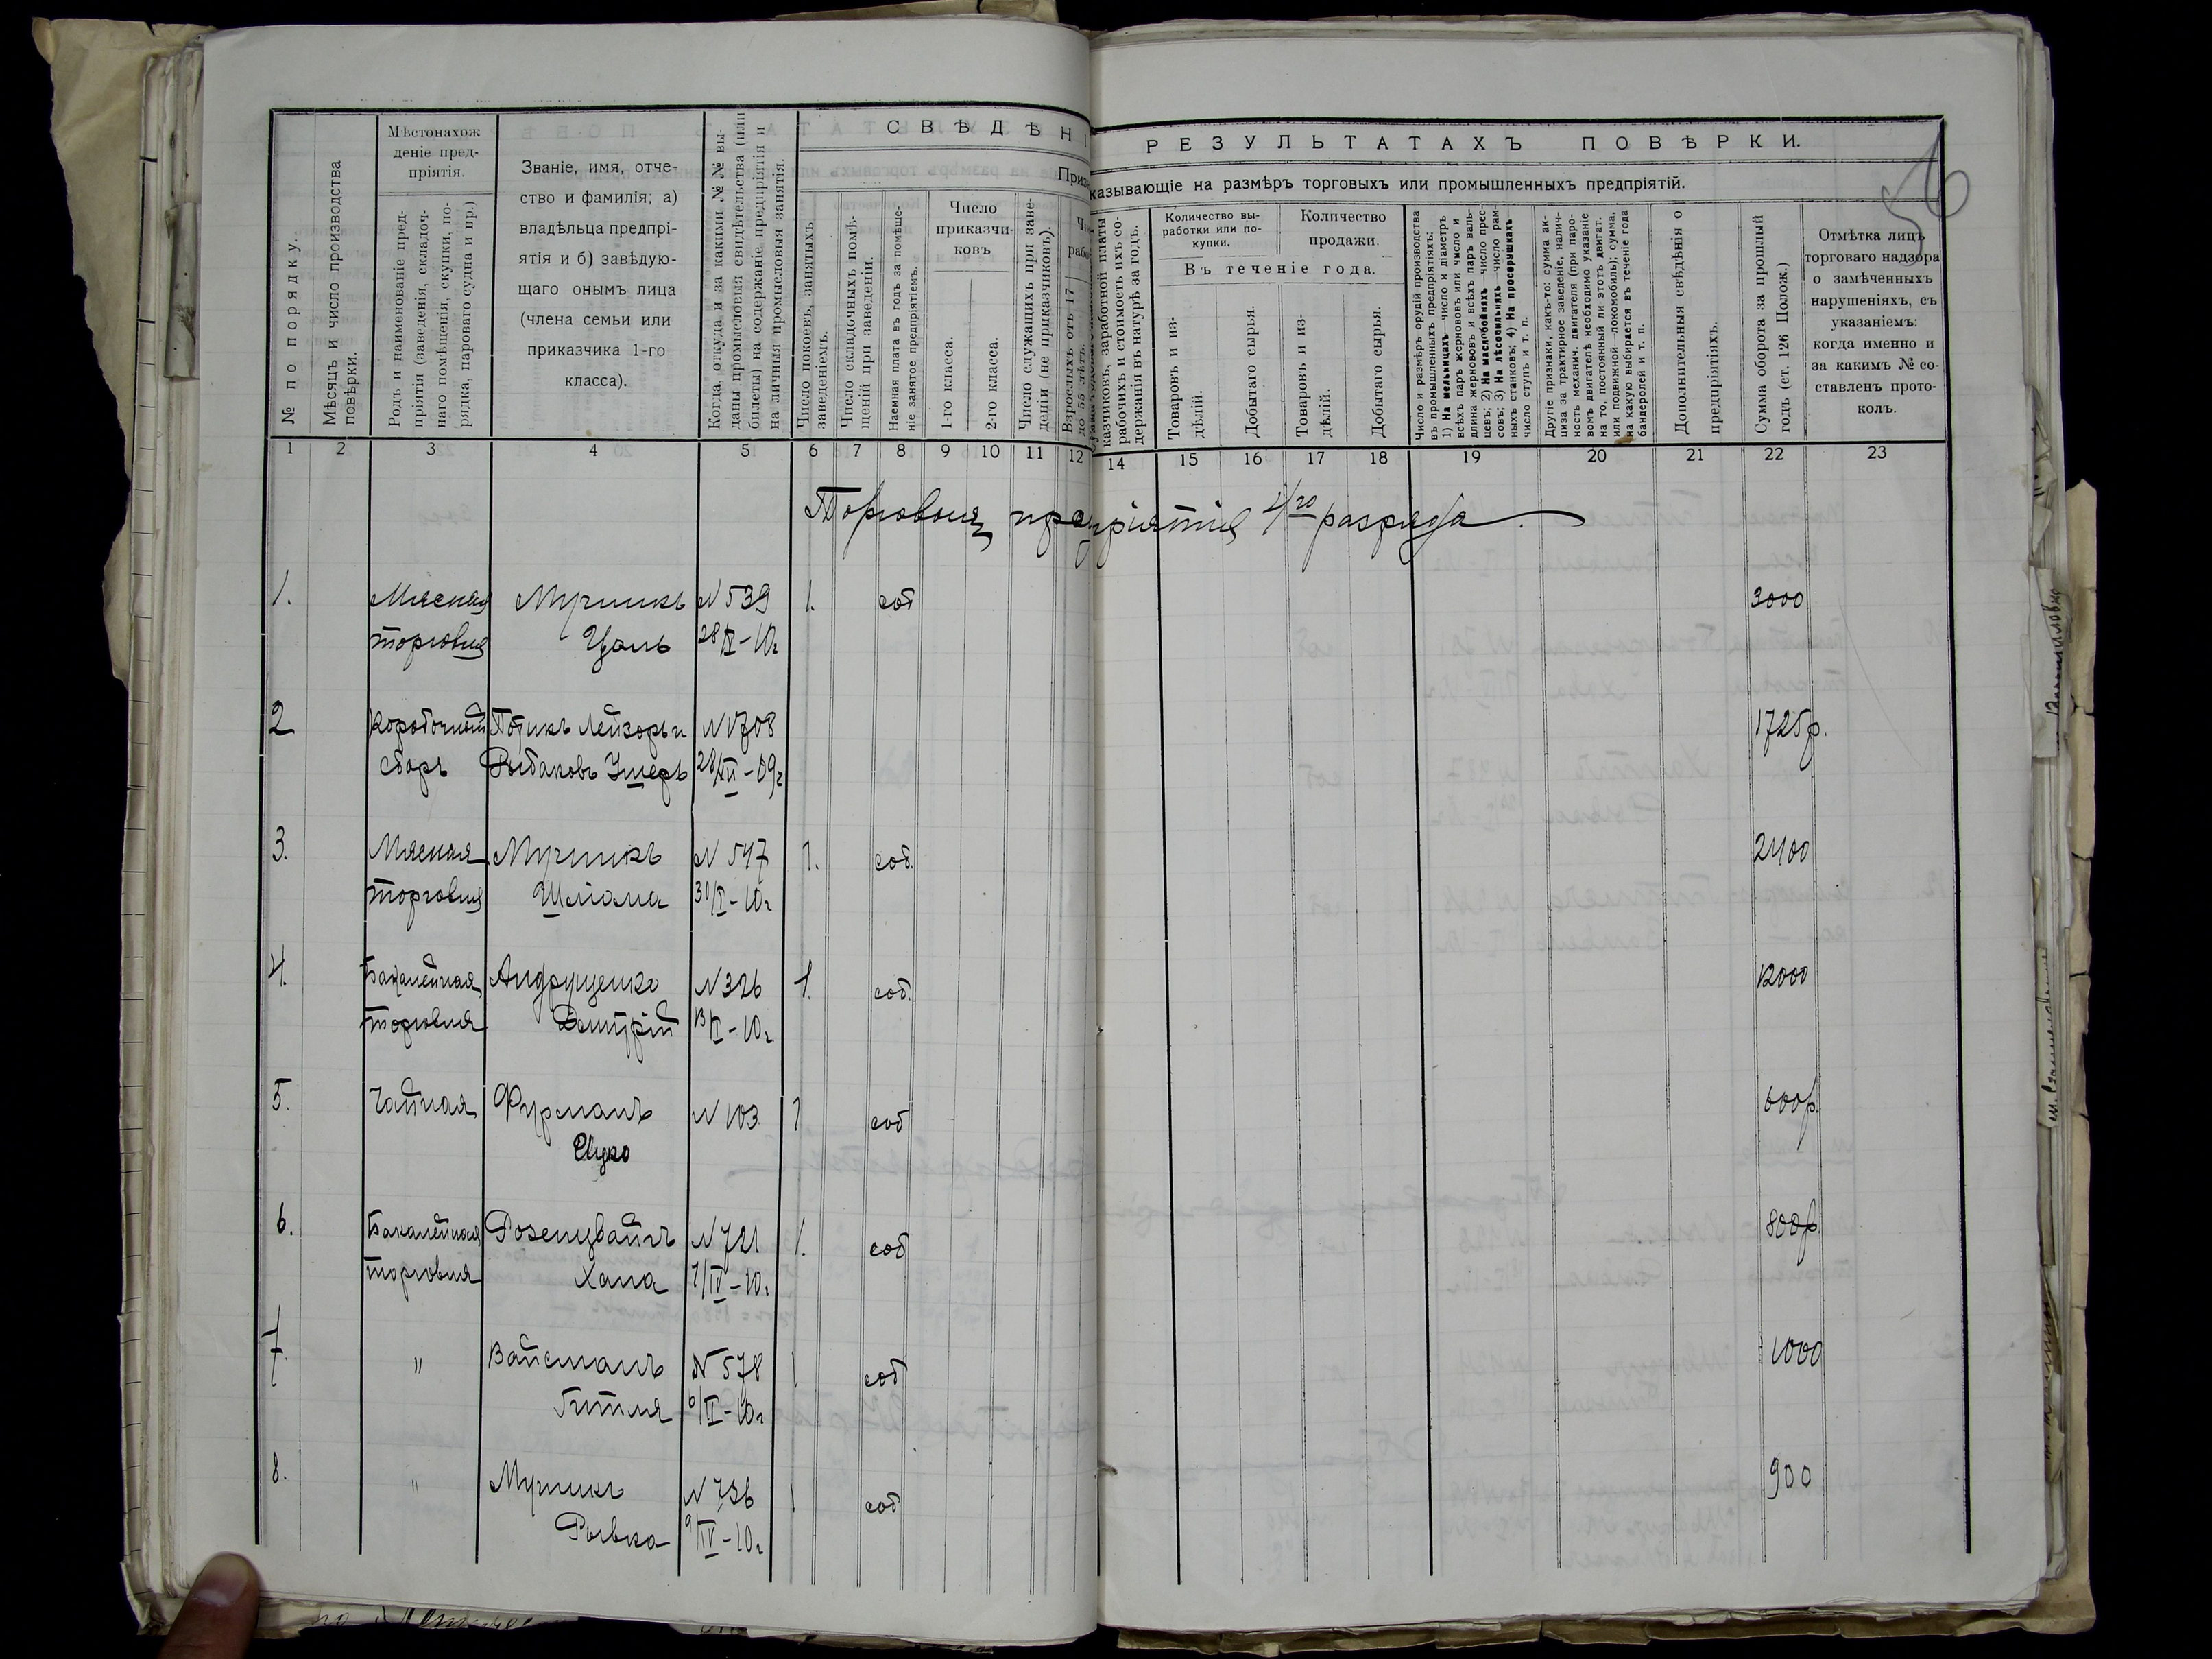 56
СВѢДѢНІ
РЕЗУЛЬТАТАХЪ ПОВѢРКИ.
казывающіе на размѣръ торговыхъ или промышленныхъ предпріятій.
№ по порядку.
Мѣсяцъ и число производства
повѣрки.
Мѣстонахож
деніе пред-
пріятія.
Родъ и наименованіе пред-
пріятія (заведенія, складоч-
наго помѣщенія, скупки, по-
рядка, парового судна и пр.)
Званіе, имя, отче-
ство и фамилія; а)
владѣльца предпрі-
ятія и б) завѣдую-
щаго онымъ лица
(члена семьи или
приказчика 1-го
класса).
Когда, откуда и за какими №№ вы-
даны промысловыя свидѣтельства (или
билеты) на содержаніе предпріятія и
на личныя промысловыя занятія.
Число покоевъ, занятыхъ
заведеніемъ.
Число складочныхъ помѣ-
щеній при заведеніи.
Наемная плата въ годъ за помѣще-
ніе занятое предпріятіемъ.
Число
приказчи-
ковъ
1-го класса.
2-го класса.
Число служащихъ при заве-
деніи (не приказчиковъ).
Взрослыхъ отъ 17
до 55 лѣтъ.
казчиковъ, заработной платы
рабочихъ и стоимость ихъ со-
держанія въ натурѣ за годъ.
Количество вы-
работки или по-
купки.
Количество
продажи.
Въ теченіе года.
Товаровъ и из-
дѣлій.
Добытаго сырья.
Товаровъ и из-
дѣлій.
Добытаго сырья.
Число и размѣръ орудій производства
въ промышленныхъ предпріятіяхъ:
1) На мельницахъ число и діаметръ
всѣхъ паръ жернововъ или число и
длина жернововъ и всѣхъ паръ валь-
цевъ; 2) На маслобойняхъ—число прес-
совъ; 3) На лѣсопильняхъ—число рам-
ныхъ станковъ; 4) На просорушкахъ
число ступъ и т. п.
Другіе признаки, какъ-то: сумма ак-
циза за трактирное заведеніе, налич-
ность механич. двигателя (при паро-
вомъ двигателѣ необходимо указаніе
на то, постоянный ли этотъ двигат.
или подвижной—ломомобиль); сумма,
на какую выбирается въ теченіе года
бандеролей и т. п.
Дополнительныя свѣдѣнія о
предпріятіяхъ.
Сумма оборота за прошлый
годъ (ст. 126 Полож.)
Отмѣтка лицъ
торговаго надзора
о замѣченныхъ
нарушеніяхъ, съ
указаніемъ:
когда именно и
за какимъ № со-
ставленъ прото-
колъ.
1 2 3 4 5 6 7 8 9 10 11 12 14 15 16 17 18 19 20 21 22 23
Торговыя предпріятія 4го разряда.
1. Мясная Мучникъ N 539 1. соб 3000
торговля Цаль 28/I-10г
2 Коробочный Потикъ Лейзоръ и N 1708 1725р.
сборъ Рыбаковъ Ушеръ 28/XII-09г
3. Мясная Мучникъ N 547 1. соб. 2400
торговля Шліома 30/I-10г
4. Бакалейная Андрущенко N 326 1. соб. 12000
торговля Дмитрій 13/I-10г
5. Чайная Фурманъ N 103 1 соб 600р.
6. Бакалейная Розенцвайгъ N 721 1. соб 800р
торговля Хана 7/IV-10г
7. " Вайсманъ N 578 1 соб 1000
Гитля 6/II-10г
8. " Мучникъ N 736 1 соб 900
Рывка 9/IV-10г